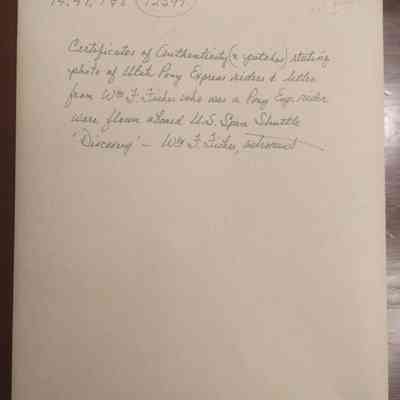 Certificates of Authenticity (& patches) stating
photo of Utah Pony Express riders & letter
from Wm F. Fisher who was a Pony Exp. rider
were flown aboard U.S. Space Shuttle
'Discovery' – Wm F. Fisher, astronaut